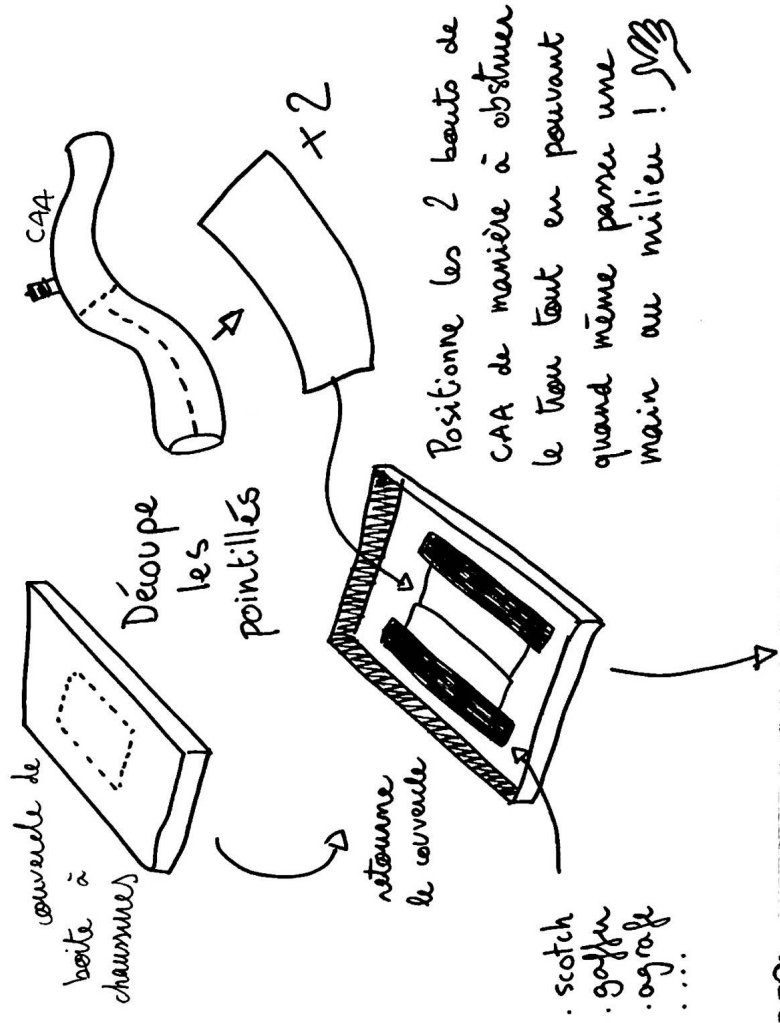 couvercle de
boîte à
chaussures
Découpe
les
pointillés
CAA
x2
retourne
le couvercle
. scotch
. gaffer
. agrafe
. ...
Positionne les 2 bouts de
CAA de manière à obstruer
le trou tout en pouvant
quand même passer une
main au milieu !